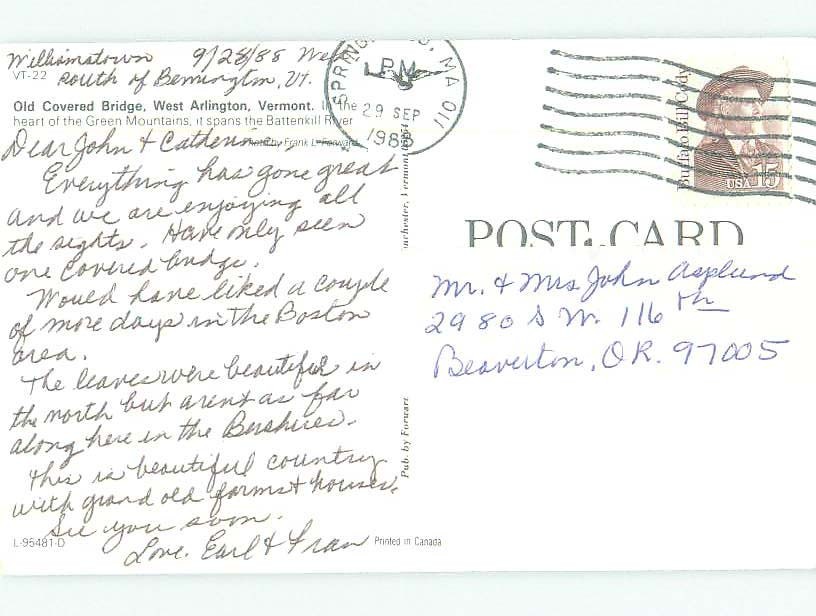 Williamstown 9/28/88 Wed
VT-22 South of Bennington, Vt.
Old Covered Bridge, West Arlington, Vermont. In the
heart of the Green Mountains, it spans the Battenkill River
Photo by Frank L. Forward
Dear John & Catherine,
Everything has gone great
and we are enjoying all
the sights. Have only seen
one covered bridge.
Would have liked a couple
of more days in the Boston
area.
The leaves were beautiful in
the north but arent as far
along here in the Bershires.
This is beautiful country
with grand old farms & houses.
See you soon.
Love, Earl & Fran
L-95481-D
Printed in Canada
Pub. by Forward
nchester, Vermont
SPRING MA 011
PM
29 SEP
1988
Buffalo Bill Cody
USA 15
POST CARD
Mr. & Mrs John Asplund
2980 S W. 116th
Beaverton, OR. 97005